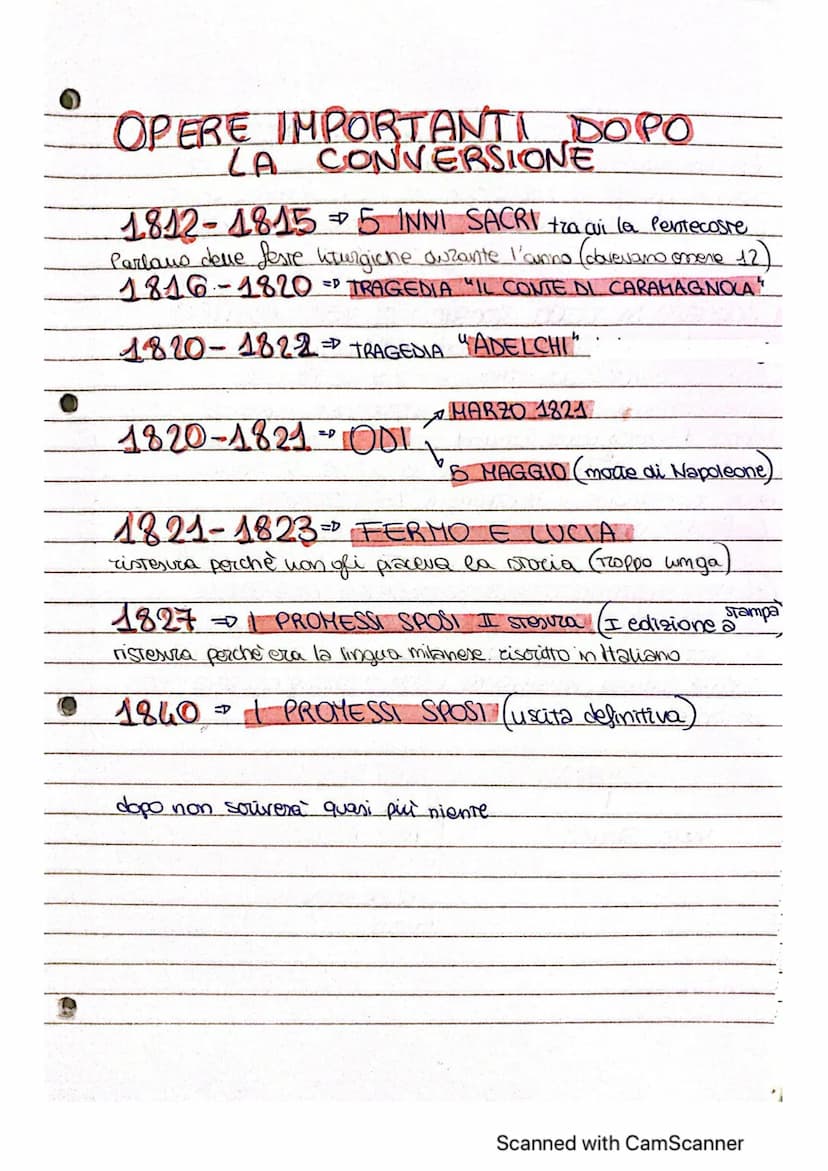 OPERE IMPORTANTI DOPO
LA CONVERSIONE
1812-1815 ⇒ 5 INNI SACRI tra cui la Pentecoste
Parlano delle feste liturgiche durante l'anno (dovevano essere 12)
1816-1820 ⇒ TRAGEDIA "IL CONTE DI CARAMAGNOLA"
1820-1822 ⇒ TRAGEDIA "ADELCHI"
MARZO 1821
1820-1821 ⇒ ODI
5 MAGGIO (morte di Napoleone)
1821-1823 ⇒ FERMO E LUCIA
ristesura perchè non gli piaceva la storia (troppo lunga)
1827 ⇒ I PROMESSI SPOSI II stesura (I edizione a stampa)
ristesura perchè era la lingua milanese riscritto in Italiano
1840 ⇒ I PROMESSI SPOSI (uscita definitiva)
dopo non scriverà quasi più niente
Scanned with CamScanner